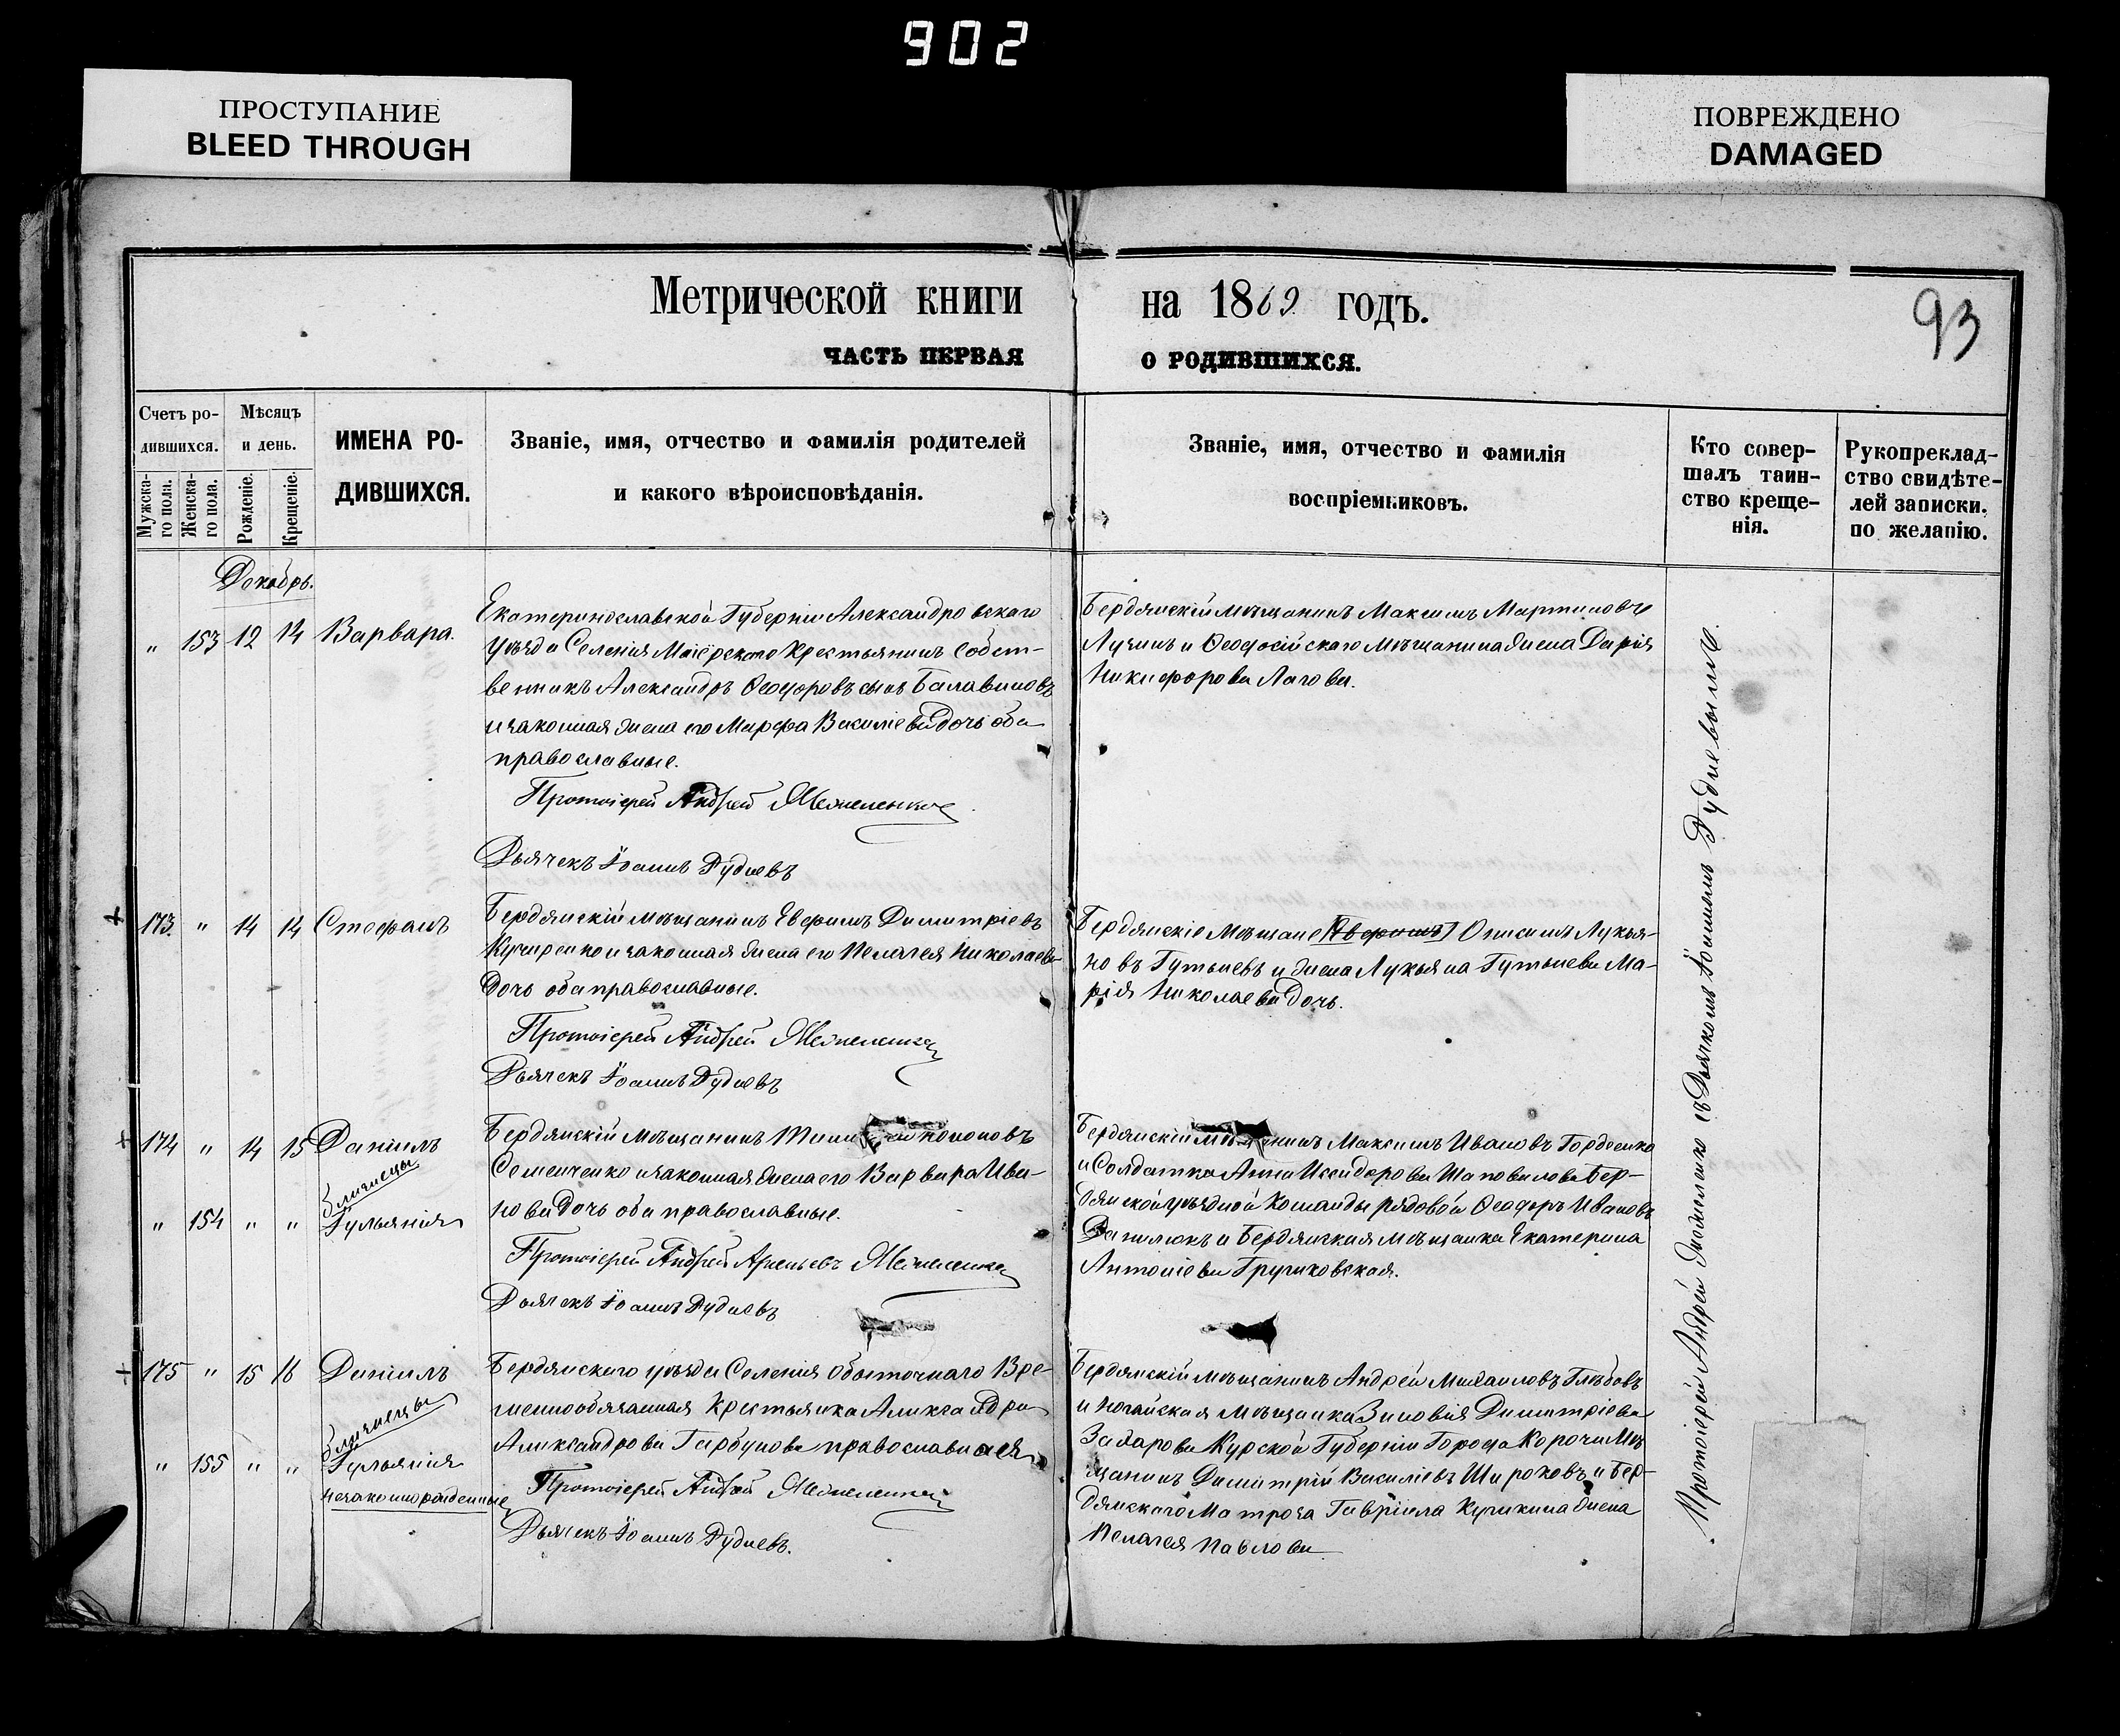 902
ПРОСТУПАНИЕ
BLEED THROUGH
ПОВРЕЖДЕНО
DAMAGED
Метрической книги на 1869 годъ.
93
ЧАСТЬ ПЕРВАЯ О РОДИВШИХСЯ.
Счетъ ро-
дившихся.
Мужска-
го пола.
Женска-
го пола.
Мѣсяцъ
и день.
Рожденіе.
Крещеніе.
ИМЕНА РО-
ДИВШИХСЯ.
Званіе, имя, отчество и фамилія родителей
и какого вѣроисповѣданія.
Званіе, имя, отчество и фамилія
воспріемниковъ.
Кто совер-
шалъ таин-
ство креще-
нія.
Рукоприклад-
ство свидѣте-
лей записки.
по желанію.
Декабрь.
" 153 12 14 Варвара.
Екатеринославской Губерніи Александровскаго
Уѣзда Селенія Крестьянинъ Собст-
венникъ Александръ Ѳеодоровъ сынъ Балавиновъ
и законная жена его Марфа Василіева дочь оба
православные.
Протоіерей Андрей
Дьячекъ Іоаннъ Дудневъ
Бердянскій мѣщанинъ Максимъ Мартиновъ
Лучинъ и Ѳеодосійскаго мѣщанина жена Дарія
Никифорова Лагова.
173. " 14 14 Стефанъ
Бердянскій мѣщанинъ Евфимъ Димитріевъ
Кучиренко и законная жена его Пелагея Николаева
дочь оба православные.
Протоіерей Андрей
Дьячекъ Іоаннъ Дудневъ
Бердянскіе Мѣщане Онисимъ Лукья-
новъ Гутыневъ и жена Лукьяна Гутынева Ма-
рія Николаева дочь.
174 " 14 15 Даніилъ
близнецы
" 154 " " Іульянія
Бердянскій мѣщанинъ Кононовъ
Семенченко и законная жена его Варвара Ива-
нова дочь оба православные.
Протоіерей Андрей Арсеньевъ
Дьячекъ Іоаннъ Дудневъ
Бердянскій Максимъ Ивановъ Гордѣенко
и Солдатка Анна Исидорова Шаповалова Бер-
дянской уѣздной Команды рядовой Ѳеодоръ Ивановъ
Данилюкъ и Бердянская мѣщанка Екатерина
Антоніева Гручковская.
175 " 15 16 Даніилъ
близнецы
" 155 " " Іульянія
незаконнорожденные
Бердянскаго уѣзда Селенія Обиточнаго Вре-
меннообязанная Крестьянка Александра
Александрова Гарбунова православная
Протоіерей Андрей
Дьячекъ Іоаннъ Дудневъ.
Бердянскій мѣщанинъ Андрей Михаиловъ Глѣбовъ
и Ногайская мѣщанка Зиновія Димитріева
Захарова Курской Губерніи Города Корочи Мѣ
щанинъ Димитрій Василіевъ Широковъ и Бер-
дянскаго Матроза Гавріила Кучкина жена
Пелагея Павлова
Протоіерей Андрей съ Дьячкомъ Іоанномъ Дудневымъ.